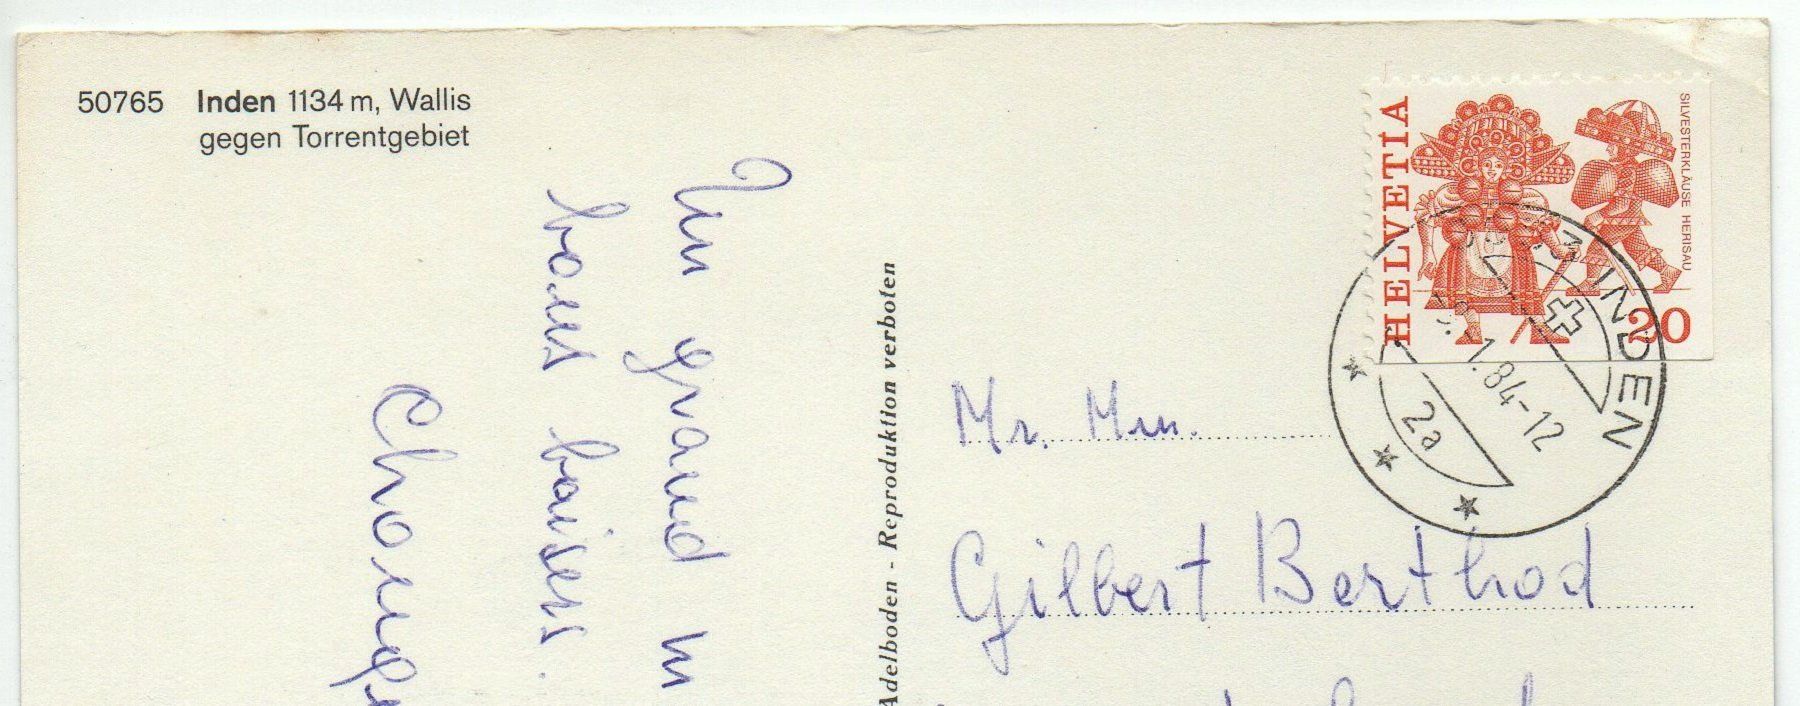 50765 Inden 1134 m, Wallis
gegen Torrentgebiet
Un grand
bons baisers.
Adelboden - Reproduktion verboten
HELVETIA
SILVESTERKLÄUSE HERISAU
20
INDEN
1.84-12
2a
Mr. Mm.
Gilbert Berthod